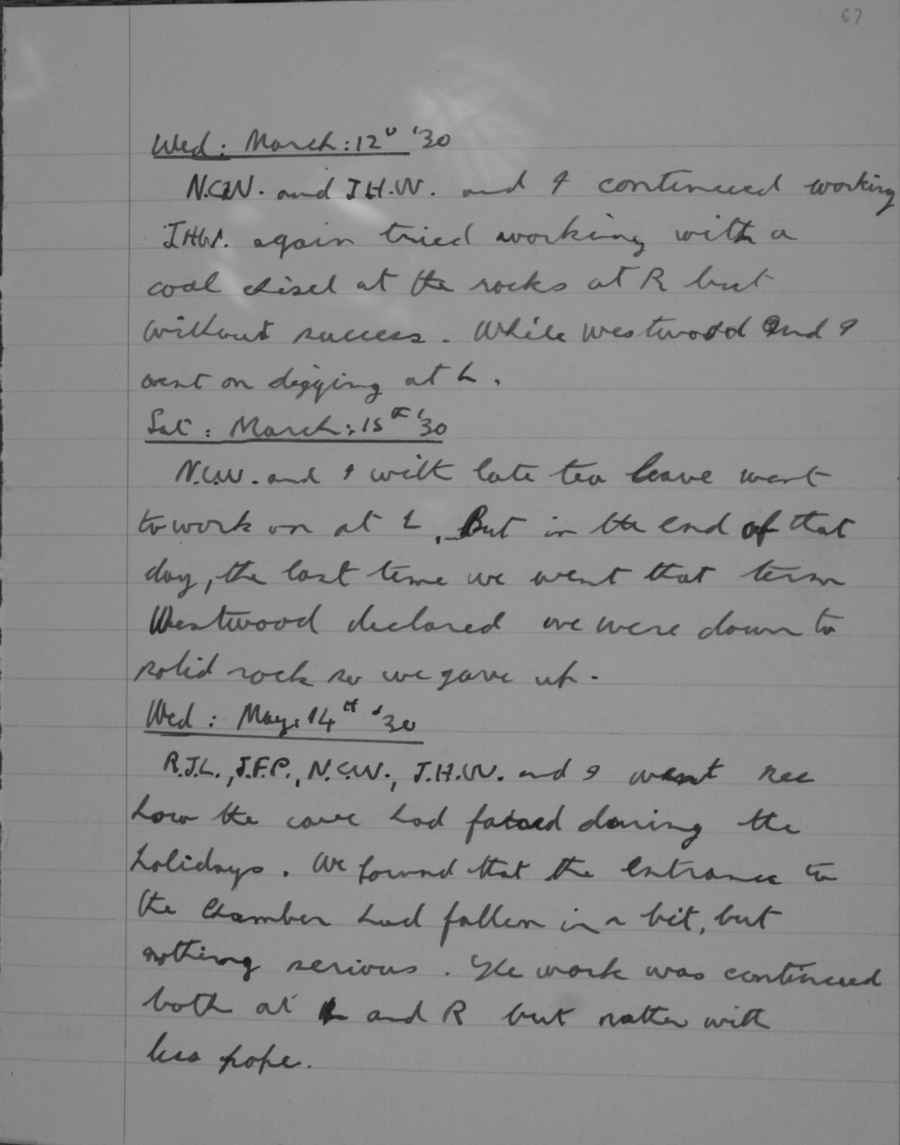 67
Wed: March: 12th '30
N.C.W. and J.H.W. and I continued working
J.H.W. again tried working with a
coal chisel at the rocks at R but
without success. While Westwood and I
went on digging at L.
Sat: March: 15th '30
N.C.W. and I with late tea leave went
to work on at L. But in the end of that
day, the last time we went that term
Westwood declared we were down to
solid rock so we gave up.
Wed: May: 14th '30
R.J.L., J.F.P., N.C.W., J.H.W. and I went see
how the cave had fared during the
holidays. We found that the entrance to
the chamber had fallen in a bit, but
nothing serious. The work was continued
both at L and R but rather with
less hope.